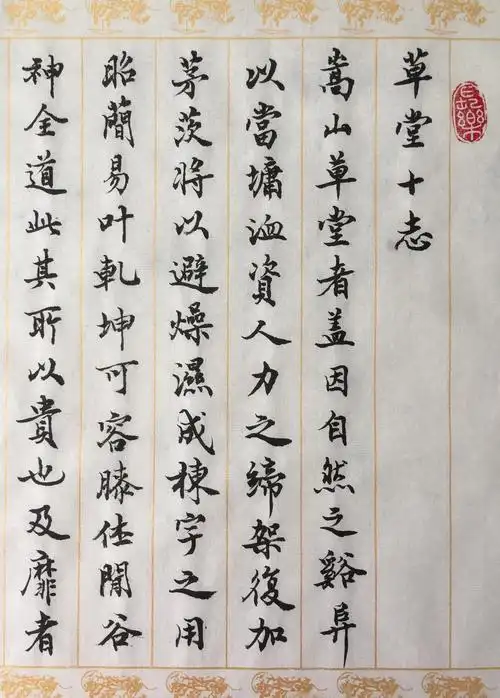 長樂
草堂十志
嵩山草堂者盖因自然之谿阜
以當墉洫資人力之締架復加
茅茨將以避燥濕成棟宇之用
昭簡易叶乾坤可容膝休閒谷
神全道此其所以貴也及靡者